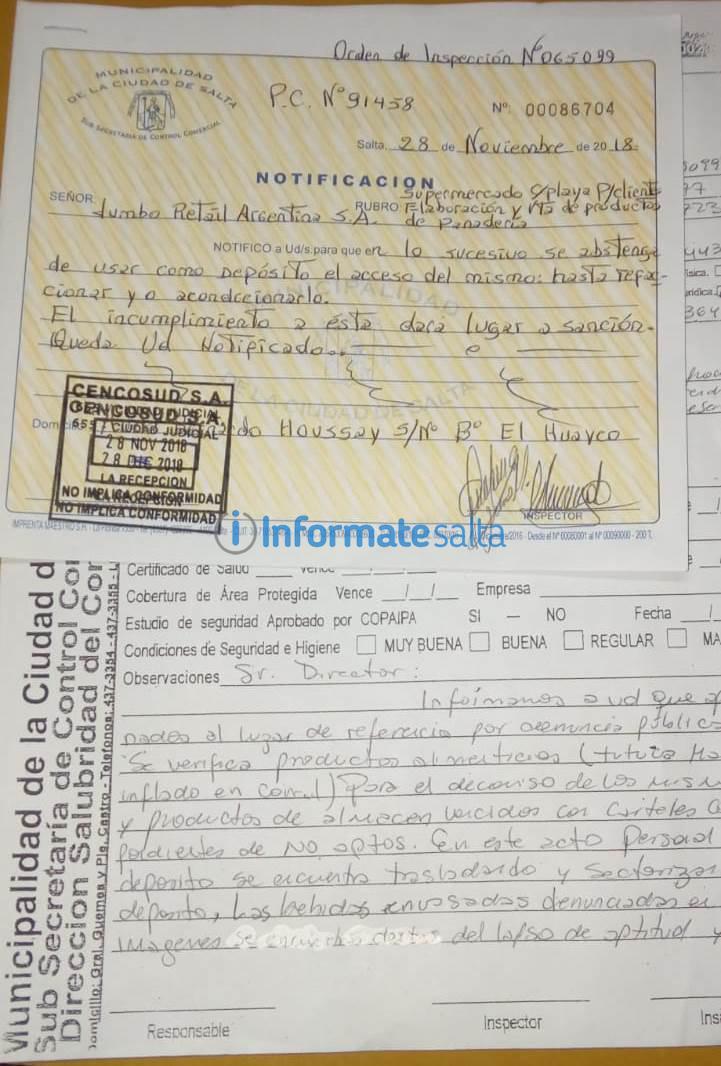 Orden de Inspección Nº 065099
MUNICIPALIDAD
DE LA CIUDAD DE SALTA
SUB SECRETARIA DE CONTROL COMERCIAL
P.C. Nº 91458
Nº: 00086704
Salta, 28 de Noviembre de 2018
NOTIFICACION
SEÑOR Jumbo Retail Argentina S.A. RUBRO Supermercado C/playa P/clientes
Elaboración y Vta de productos
de Panadería
NOTIFICO a Ud/s.para que en lo sucesivo se abstenga
de usar como Depósito el acceso del mismo: hasta refac-
cionar y o acondicionarlo.
El incumplimiento a ésta dara lugar a sanción.
Queda Ud Notificado.
CENCOSUD S.A.
CENCOSUD S.A.
CIUDAD JUDICIAL
28 NOV 2018
28 DIC 2018
LA RECEPCION
NO IMPLICA CONFORMIDAD
LA RECEPCION
NO IMPLICA CONFORMIDAD
Houssay S/Nº Bº El Huayco
INSPECTOR
i Informatesalta
2016 - Desde el Nº 00080001 al Nº 00090000 - 200 T.
Municipalidad de la Ciudad d
Sub Secretaría de Control Co
Dirección Salubridad del Con
Domicilio: Gral. Guemes y Pje. Castro - Telefonos: 437-3354 - 437-3355 -
Certificado de Salud Vence
Cobertura de Área Protegida Vence __/__/__ Empresa
Estudio de seguridad Aprobado por COPAIPA SI — NO Fecha
Condiciones de Seguridad e Higiene MUY BUENA BUENA REGULAR MA
Observaciones Sr. Director:
Informamos a ud que
al lugar de referencia por denuncia pública
Se verifica productos alimenticios
inflado en Para el decomiso de los
y productos de almacen vencidos con carteles
de No aptos. En este acto Personal
deposito se encuentra trasladando y sectorizar
deposito, Las bebidas envasadas denunciadas en
imagenes se dentro del lapso de aptitud y
Responsable
Inspector
Ins